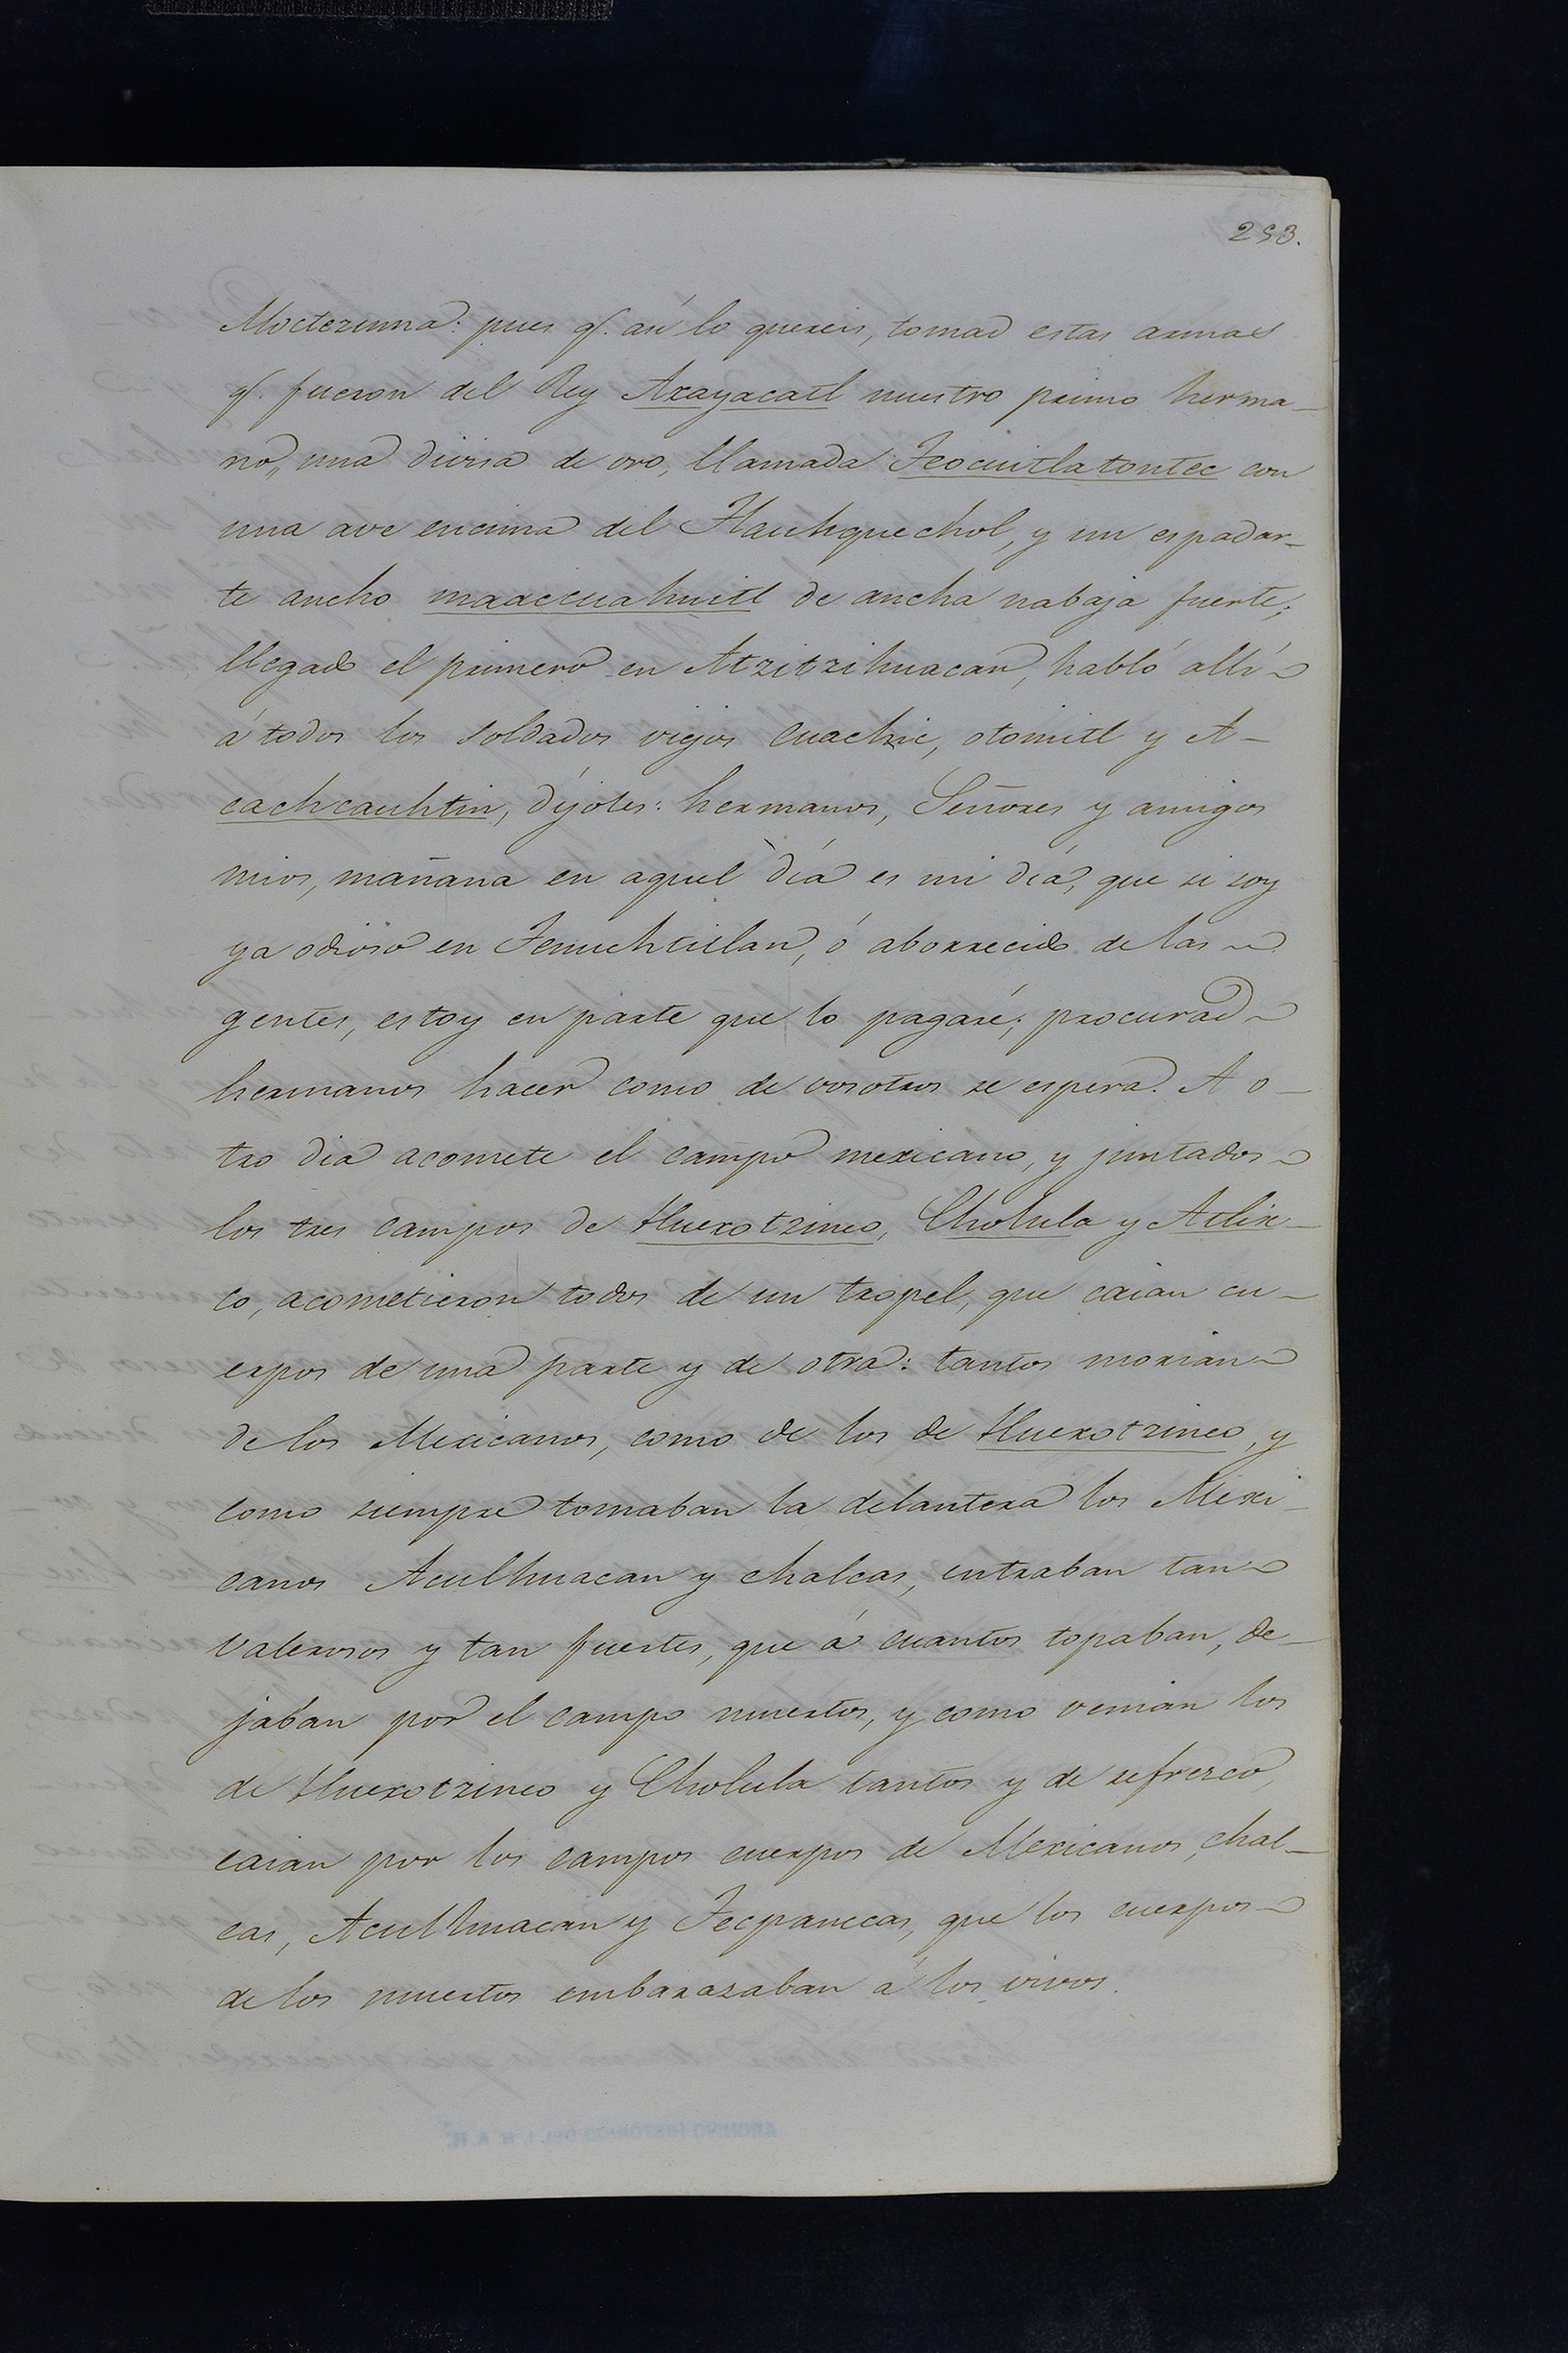 293.
Moctezuma: pues q.e así lo quereis, tomad estas armas
q.e fueron del Rey Axayacatl nuestro primo herma-
no, una divisa de oro, llamada Teocuitlatontec con
una ave encima del Tlauhquechol, y un espadar-
te ancho maaccuahuitl de ancha nabaja fuerte;
llegado el primero en Atzitzihuacan, habló allí
á todos los soldados viejos cuachic, otomitl y A-
cachcauhtin, díjoles: hermanos, Señores y amigos
mios, mañana en aquel día es mi día, que si soy
ya odioso en Tenuchtitlan, ó aborrecido de las
gentes, estoy en parte que lo pagaré; procurad
hermanos hacer como de vosotros se espera. A o-
tro dia acomete el campo mexicano, y juntados
los tres campos de Huexotzinco, Cholula y Atlix-
co, acometieron todos de un tropel, que caian cu-
erpos de una parte y de otra: tantos morian
de los Mexicanos, como de los de Huexotzinco, y
como siempre tomaban la delantera los Mexi-
canos Aculhuacan y chalcas, entraban tan
valerosos y tan fuertes, que á cuantos topaban, de-
jaban por el campo muertos, y como venian los
de Huexotzinco y Cholula tantos y de refresco,
caian por los campos cuerpos de Mexicanos, chal-
cas, Aculhuacan y Tecpanecas, que los cuerpos
de los muertos embarazaban á los vivos.